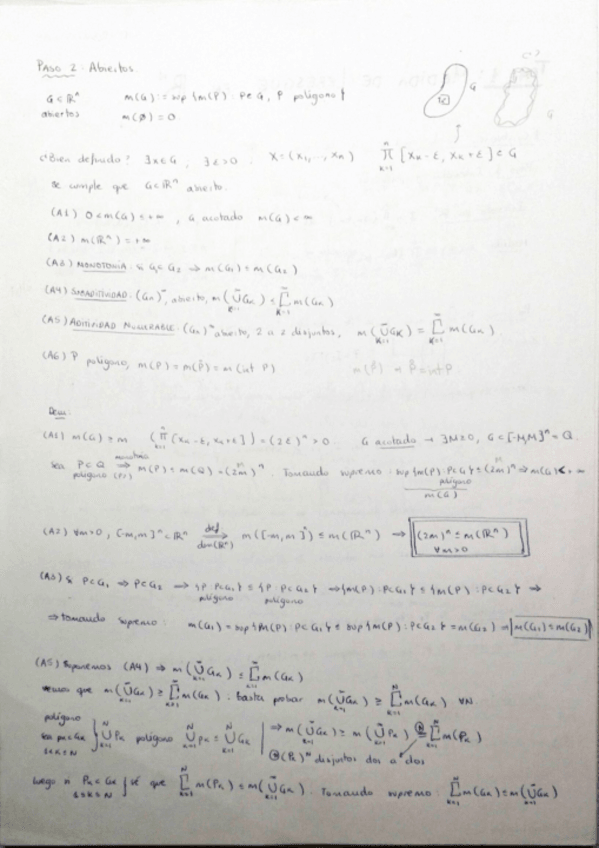 PASO 2: Abiertos.
G ⊂ ℝⁿ m(G) := sup {m(P) : P ⊂ G, P polígono}
abiertos m(∅) = 0
¿Bien definido? ∃x∈G, ∃ε>0. x = (x₁,..., xₙ) ∏ₖ₌₁ⁿ [xₖ-ε, xₖ+ε] ⊂ G
se cumple que G⊂ℝⁿ abierto.
(A1) 0 < m(G) ≤ +∞, G acotado m(G) < ∞
(A2) m(ℝⁿ) = +∞
(A3) MONOTONÍA: si G₁ ⊂ G₂ ⇒ m(G₁) ≤ m(G₂)
(A4) SUBADITIVIDAD: (Gₖ)^∞, abierto, m(∪ₖ₌₁^∞ Gₖ) ≤ ∑ₖ₌₁^∞ m(Gₖ)
(A5) ADITIVIDAD NUMERABLE: (Gₖ)^∞ abierto, 2 a 2 disjuntos, m(∪ₖ₌₁^∞ Gₖ) = ∑ₖ₌₁^∞ m(Gₖ)
(A6) P polígono, m(P) = m(P̊) = m(int P) m(P̊) P̊ = int P
Dem:
(A1) m(G) ≥ m (∏ₖ₌₁ⁿ [xₖ-ε, xₖ+ε]) = (2ε)ⁿ > 0. G acotado → ∃M≥0, G ⊂ [-M,M]ⁿ = Q.
Sea P ⊂ Q ⇒ m(P) ≤ m(Q) = (2M)ⁿ. Tomando supremo: sup {m(P) : P⊂G} ≤ (2M)ⁿ ⇒ m(G) < +∞
polígono (P3) monotonía polígono m(G)
(A2) ∀m>0, [-m,m]ⁿ ⊂ ℝⁿ ⇒ m([-m,m]ⁿ) ≤ m(ℝⁿ) ⇒ (2m)ⁿ ≤ m(ℝⁿ)
def ∀m>0
(A3) Si P⊂G₁ ⇒ P⊂G₂ ⇒ {P : P⊂G₁} ⊂ {P : P⊂G₂} ⇒ {m(P) : P⊂G₁} ⊂ {m(P) : P⊂G₂} ⇒
polígono polígono
⇒ tomando supremo: m(G₁) = sup {m(P) : P⊂G₁} ≤ sup {m(P) : P⊂G₂} = m(G₂) ⇒ m(G₁) ≤ m(G₂)
(A5) Suponemos (A4) ⇒ m(∪ₖ₌₁^∞ Gₖ) ≤ ∑ₖ₌₁^∞ m(Gₖ)
que m(∪ₖ₌₁^∞ Gₖ) ≥ ∑ₖ₌₁^∞ m(Gₖ). Basta probar m(∪ₖ₌₁^∞ Gₖ) ≥ ∑ₖ₌₁^N m(Gₖ) ∀N
polígono
Sea Pₖ⊂Gₖ } ∪ₖ₌₁^N Pₖ polígono ∪ₖ₌₁^N Pₖ ⊂ ∪ₖ₌₁^N Gₖ | ⇒ m(∪ₖ₌₁^∞ Gₖ) ≥ m(∪ₖ₌₁^N Pₖ) = ∑ₖ₌₁^N m(Pₖ)
1≤k≤N (Pₖ)^N disjuntos dos a dos
Luego si Pₖ⊂Gₖ } sé que ∑ₖ₌₁^N m(Pₖ) ≤ m(∪ₖ₌₁^∞ Gₖ). Tomando supremo: ∑ₖ₌₁^N m(Gₖ) ≤ m(∪ₖ₌₁^∞ Gₖ)
1≤k≤N